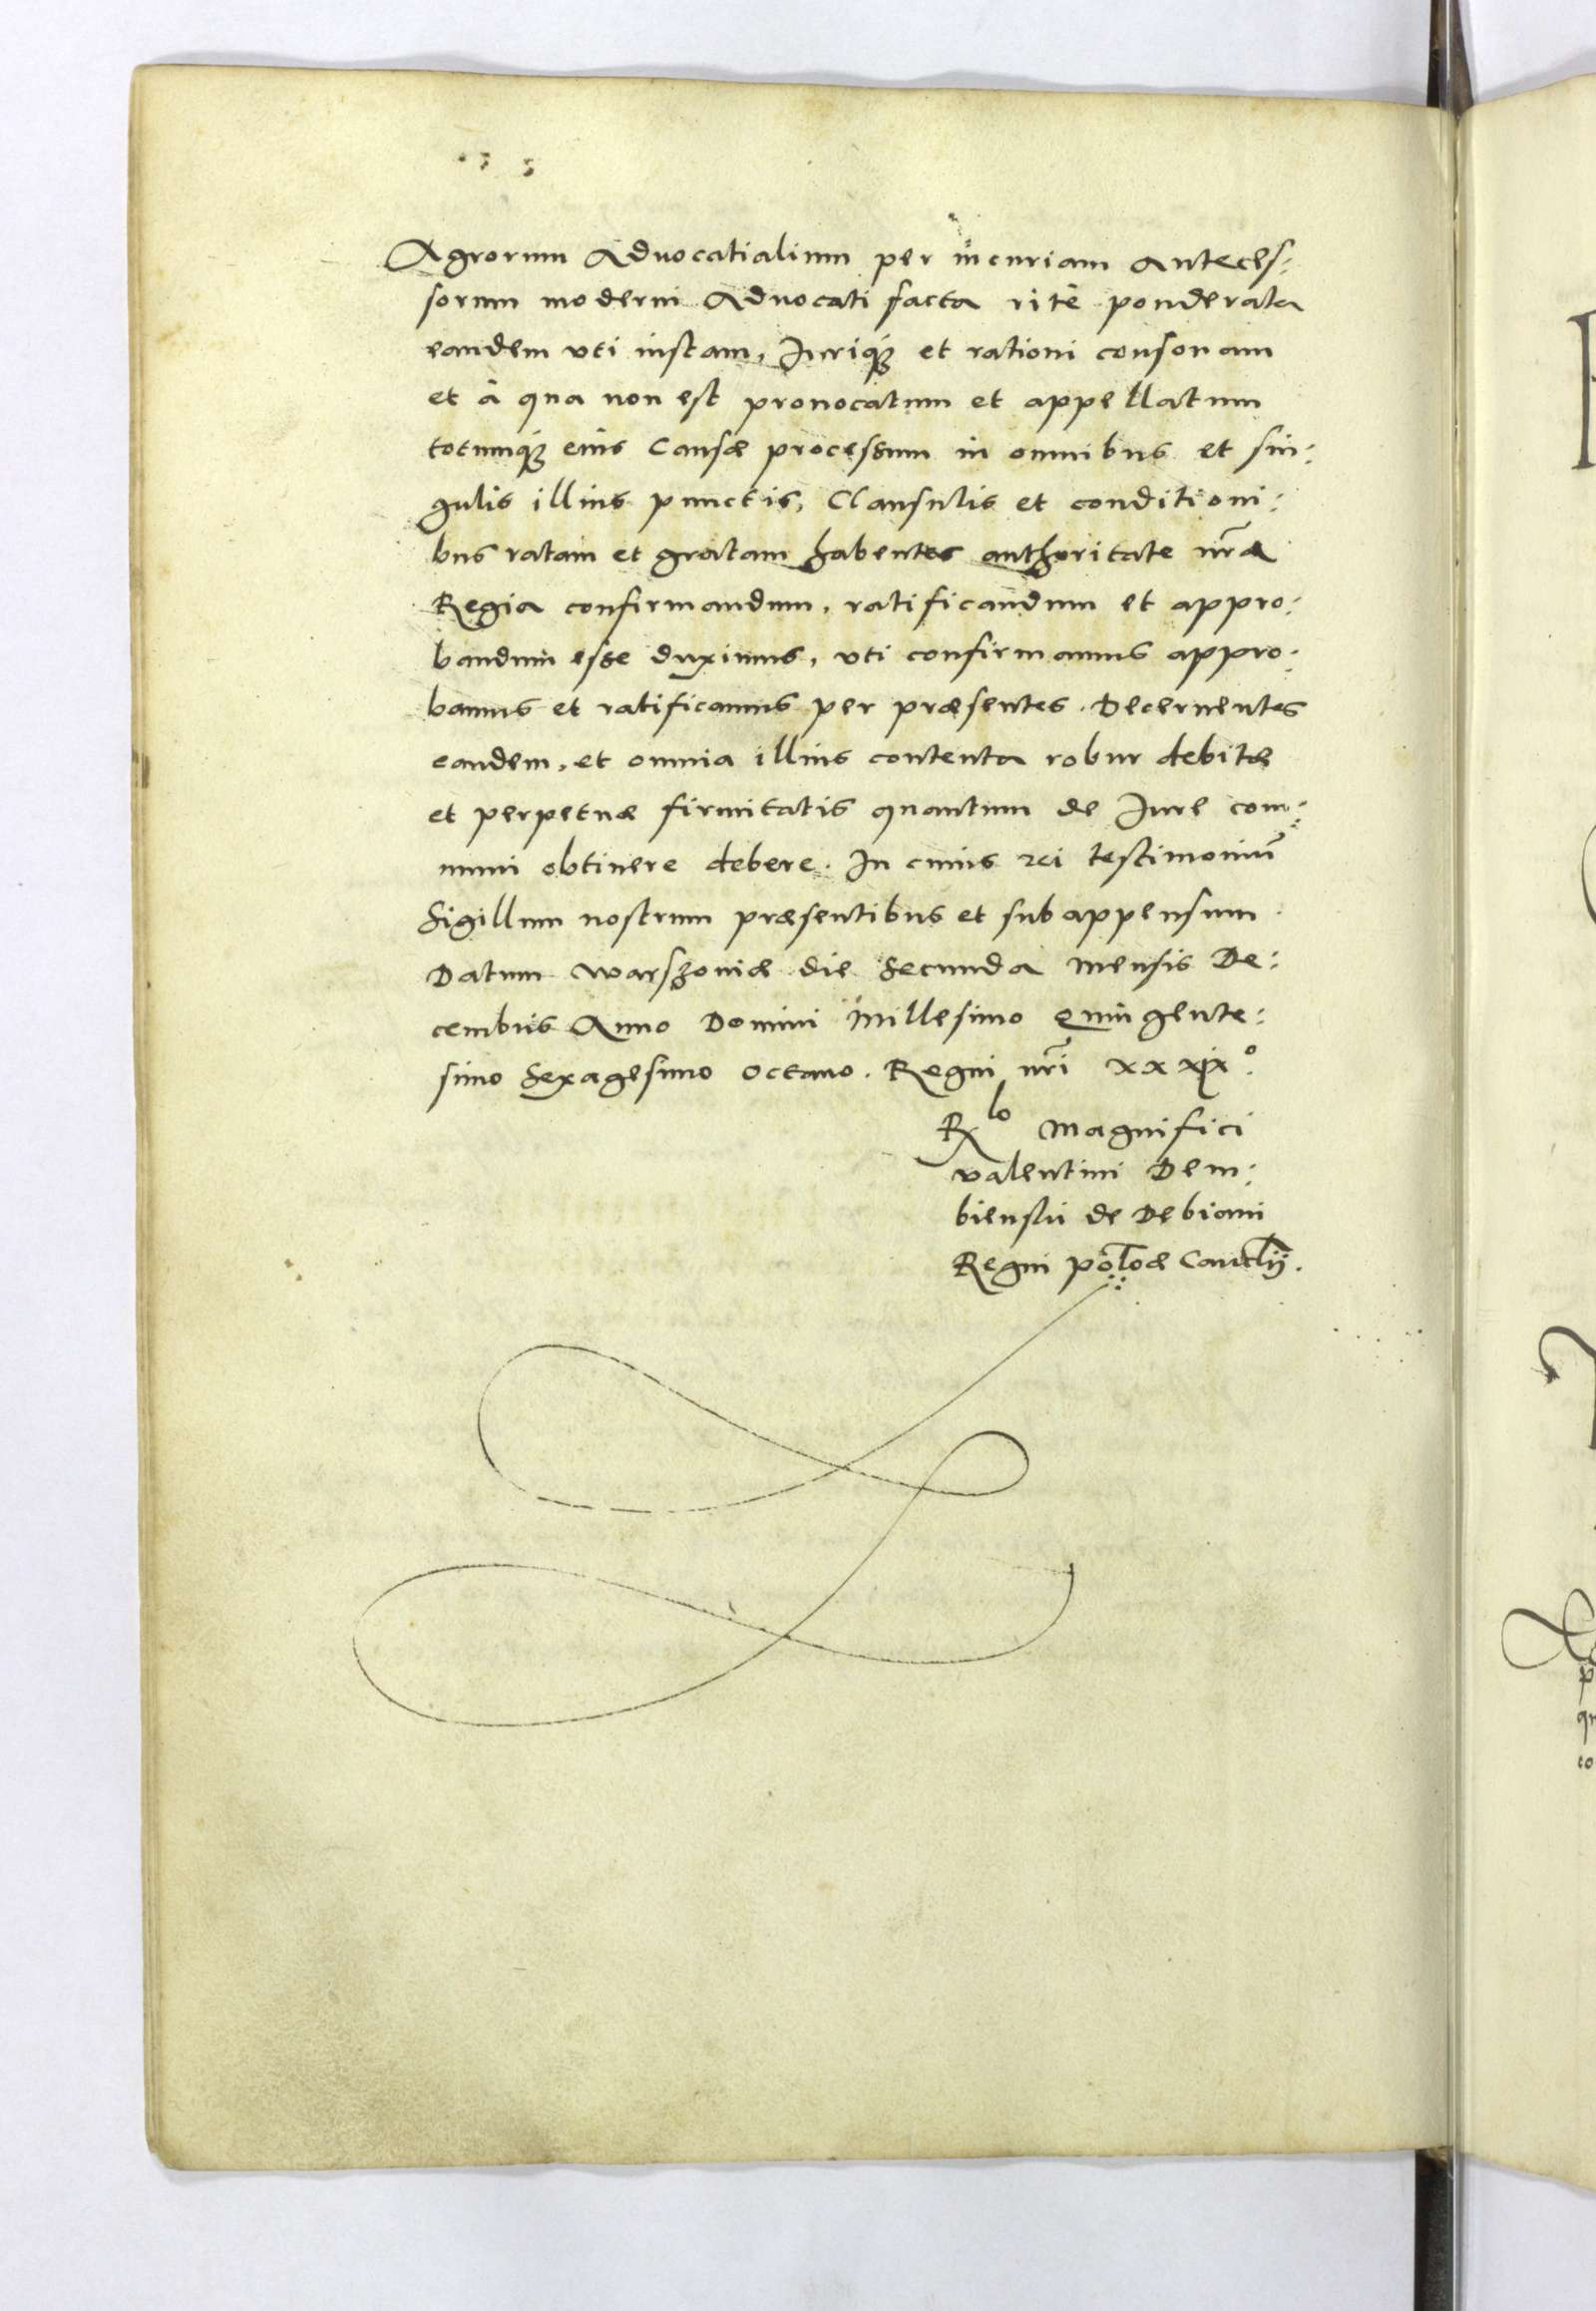 Agrorum Advocatialium per incuriam anteces:
sorum moderni Advocati facta ritè ponderata
eandem uti iustam, Juriq₃ et rationi consonam
et à qua non est provocatum et appellatum
totumq₃ eius Causæ processum in omnibus et sin:
gulis illius punctis, Clausulis et conditioni:
bus ratam et gratam habentes authoritate nr̃a
Regia confirmandum, ratificandum et appro:
bandum esse duximus, uti confirmamus appro:
bamus et ratificamus per præsentes. Decernentes
eandem, et omnia illius contenta robur debitæ
et perpetuæ firmitatis quantum de Jure com:
muni obtinere debere. In cuius rei testimoniũ
Sigillum nostrum præsentibus et subappensum.
Datum Warszoviæ die Secunda mensis De:
cembris Anno Domini Millesimo Quingente:
simo Sexagesimo Octavo. Regni nr̃i xxxix°.
Rlo Magnifici
Valentini Dem:
biensii de Debiani
Regni Pol̃oæ Canclĩj.